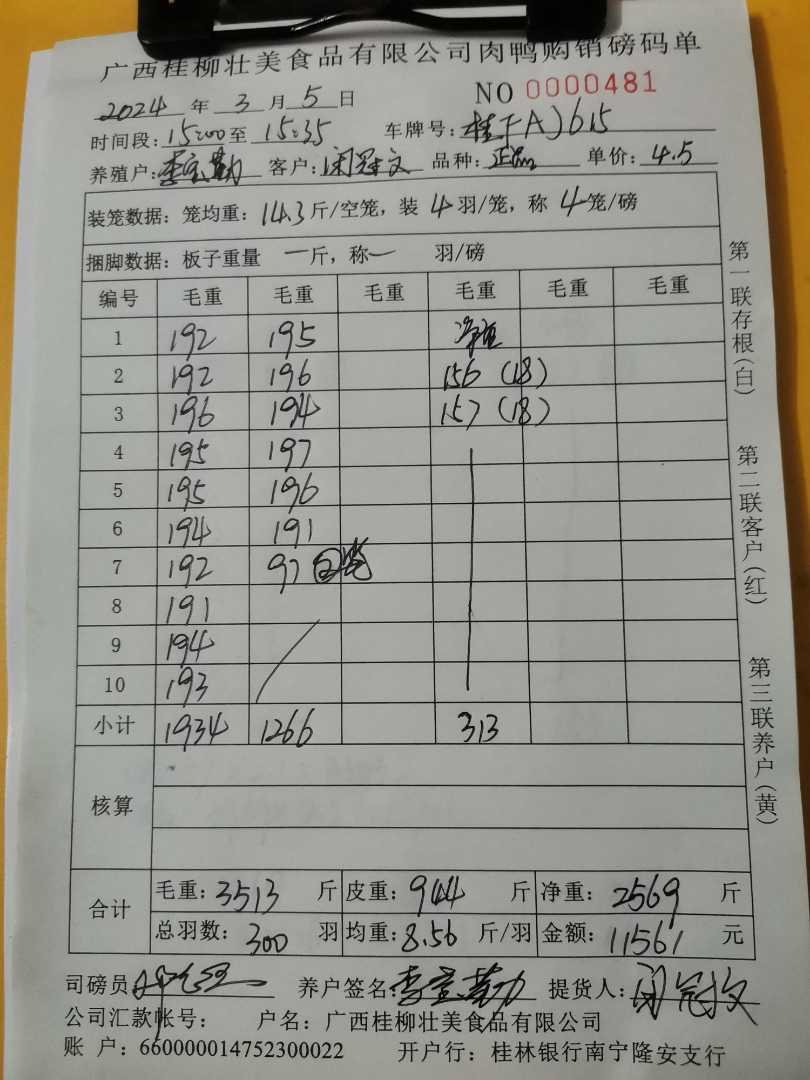 广西桂柳壮美食品有限公司肉鸭购销磅码单
2024 年 3 月 5 日 NO 0000481
时间段: 15:00 至 15:35 车牌号: 桂
养殖户: 李宝勤 客户: 闲冠文 品种: 正品 单价: 4.5
装笼数据: 笼均重: 14.3 斤/空笼, 装 4 羽/笼, 称 4 笼/磅
捆脚数据: 板子重量 一 斤, 称 一 羽/磅
编号 毛重 毛重 毛重 毛重 毛重 毛重
1 192 195 净重
2 192 196 156 (18)
3 196 194 157 (18)
4 195 197
5 195 196
6 194 191
7 192 97
8 191
9 194
10 193
小计 1934 1266 313
核算
合计 毛重: 3513 斤 皮重: 944 斤 净重: 2569 斤
总羽数: 300 羽 均重: 8.56 斤/羽 金额: 11561 元
司磅员: 养户签名: 李宝勤 提货人: 闲冠文
公司汇款帐号: 户名: 广西桂柳壮美食品有限公司
账 户: 660000014752300022 开户行: 桂林银行南宁隆安支行
第一联存根(白)
第二联客户(红)
第三联养户(黄)